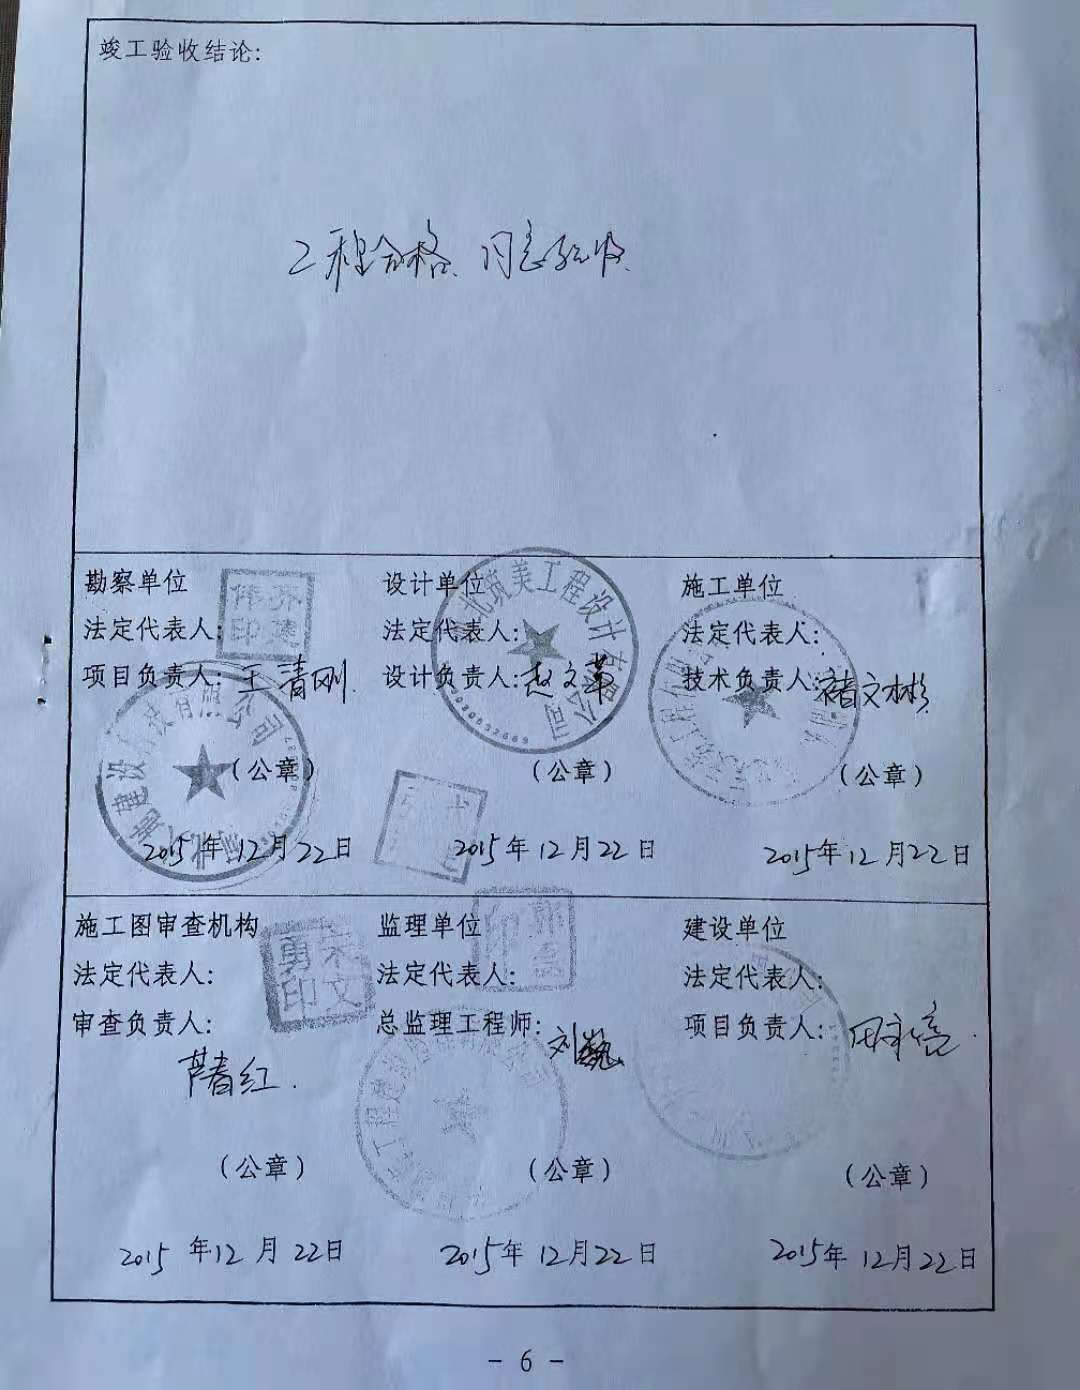 竣工验收结论:
工程合格、同意验收.
勘察单位
法定代表人:
项目负责人: 王清刚
(公章)
2015年12月22日
设计单位
法定代表人:
设计负责人: 赵文革
筑美工程设计有限公司
(公章)
2015年12月22日
施工单位
法定代表人:
技术负责人: 褚文彬
(公章)
2015年12月22日
施工图审查机构
法定代表人:
宋文勇印
审查负责人:
春红.
(公章)
2015年12月22日
监理单位
法定代表人:
总监理工程师: 刘
(公章)
2015年12月22日
建设单位
法定代表人:
项目负责人:
(公章)
2015年12月22日
- 6 -